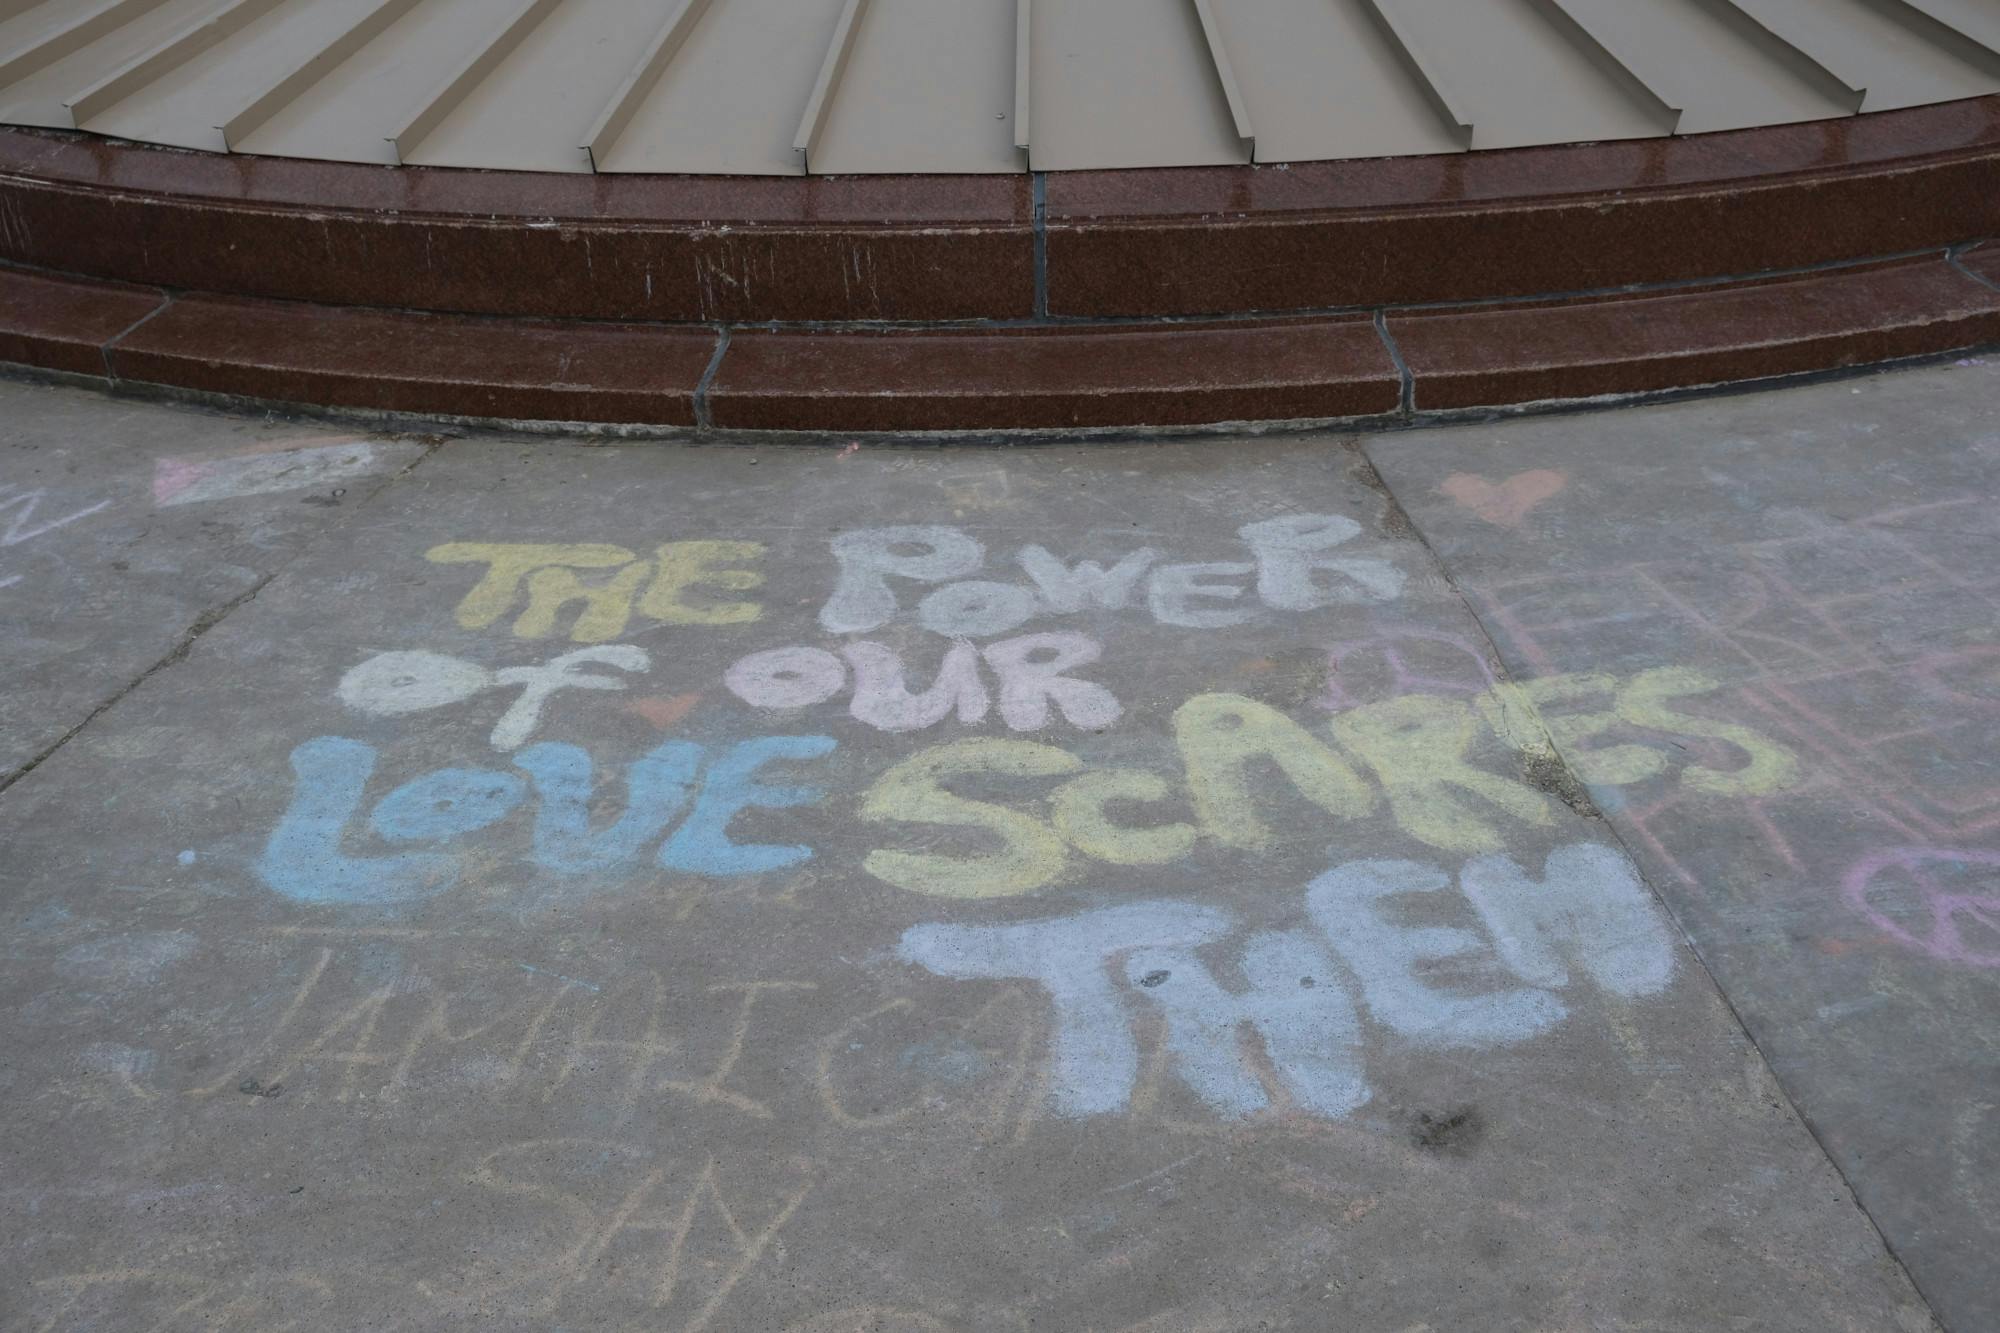 THE POWER
OF OUR
LOVE SCARES
THEM
JAMAICAN
SAY